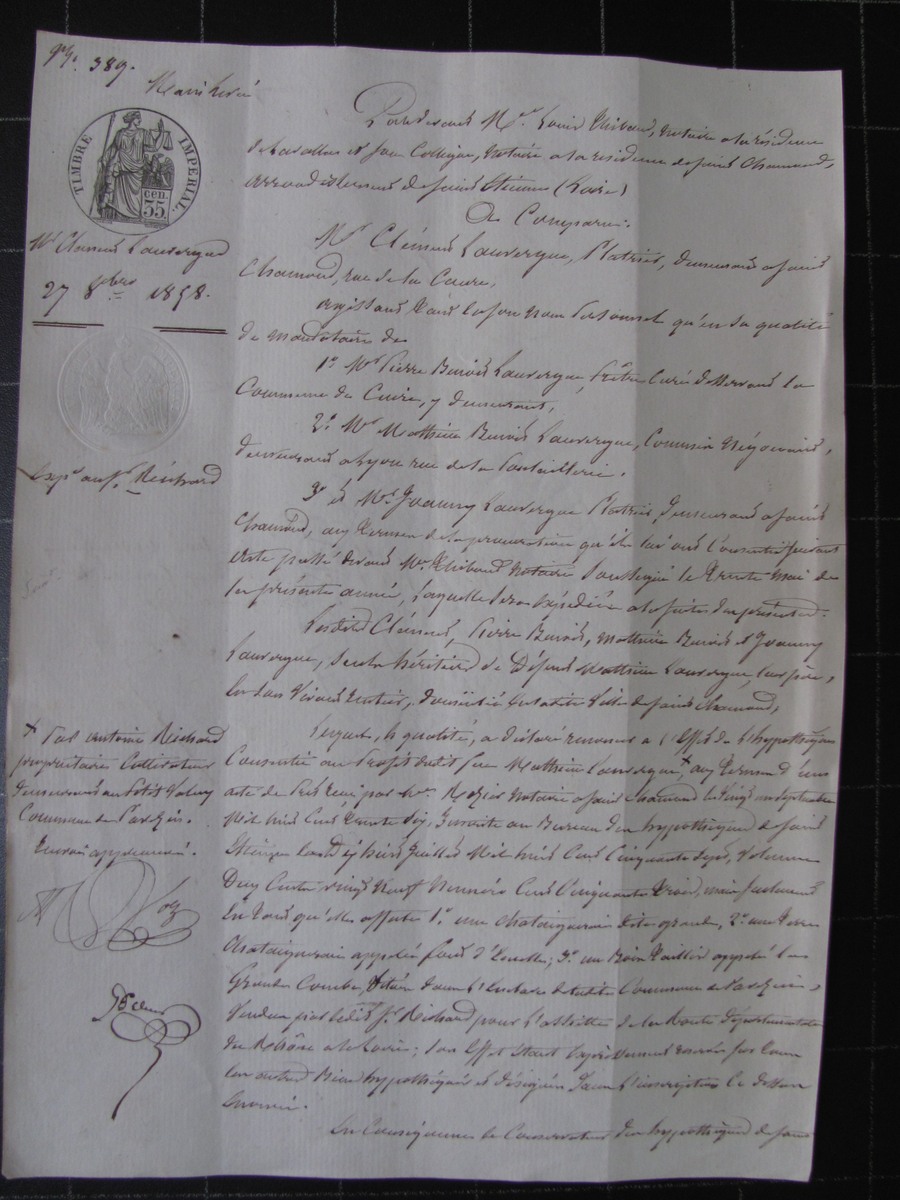 389.
Mainlevée
TIMBRE IMPERIAL.
35 cen.
Mr Clément Lauvergne
27 8bre 1858.
Expn au Sr Réichard
Pardevant Me Louis Thibaud, Notaire à la résidence
et son Collègue, Notaire à la résidence de saint Chamond,
arrondissement de saint Etienne (Loire)
A Comparu:
Mr Clément Lauvergne, Platrier, demeurant à saint
Chamond, rue de la
agissant tant en son nom Personnel qu'en sa qualité
de mandataire de
1° Mr Pierre Benoit Lauvergne, Prêtre Curé desservant la
Commune de Cuire, y demeurant,
2° Mr Mathieu Benoit Lauvergne, Commis Négociant,
demeurant à Lyon rue de la
3° et Mr Joanny Lauvergne Platrier, demeurant à saint
Chamond, aux termes de la procuration qu'ils lui ont Consentie suivant
acte passé devant Me Thibaud Notaire soussigné le trente mai de
la présente année, laquelle sera expédiée à la suite des présentes.
Lesdits Clément, Pierre Benoit, Mathieu Benoit et Joanny
Lauvergne, seuls héritiers de Défunt Mathieu Lauvergne, leur père,
en son vivant rentier, domicilié en ladite Ville de saint Chamond,
Lequel, ès qualité, a déclaré renoncer à l'Effet de l'hypothèque
Consentie au Profit dudit feu Mathieu Lauvergne, + aux termes d'un
acte reçu par Me Notaire à saint Chamond le vingt un septembre
Mil huit Cent trente six, Inscrite au Bureau des hypothèques de saint
Etienne le dix huit Juillet Mil huit Cent Cinquante sept, Volume
Deux Cent vingt neuf Numéro Cent Cinquante trois, mais seulement
En tant qu'elle affecte 1° une chataigneraie dite grande, 2° une terre
Chataigneraie appelée fond d' ; 3° un Bois Taillis appelé les
Grandes Combes, situés dans l'Enclave de ladite Commune de
Vendus par ledit Sr Réichard pour l'assiette de la Route départementale
du Rhône à la Loire; son Effet étant Expressément réservé sur tous
les autres Biens hypothéqués et désignés dans l'inscription Ci dessus
énoncée.
En Conséquence le Conservateur des hypothèques de saint
+ Par Antoine Réichard
propriétaire Cultivateur
demeurant au Petit
Commune de
Renvoi approuvé.